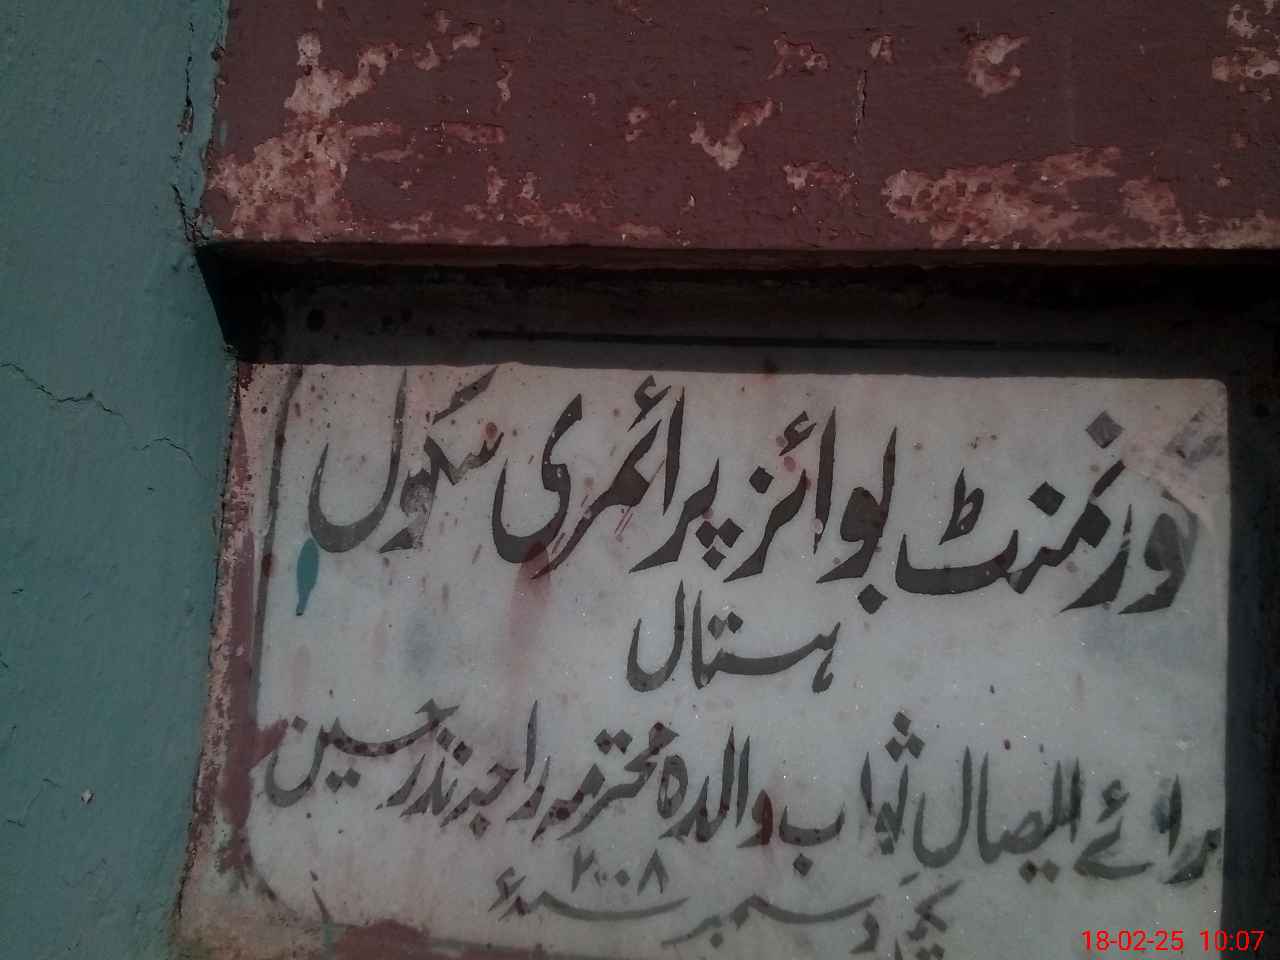 ورنمنٹ بوائز پرائمری سکول
ہستال
برائے ایصال ثواب والدہ محترمہ راجہ نذر حسین
یکم دسمبر سنہ ۲۰۰۸ء
18-02-25 10:07